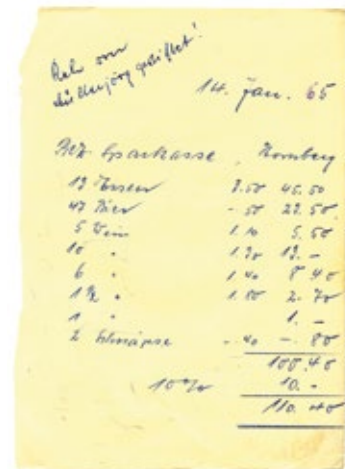 Reh von
gestiftet!
14. Jan. 65
Bez. Sparkasse, Hornberg
13 Essen 3.50 45.50
47 Bier -.50 23.50
5 Wein 1.10 5.50
10 " 1.30 13.-
6 " 1.40 8.40
1 1/2 " 1.80 2.70
1 " 1.-
2 Schnäpse -.40 -.80
100.40
10% 10.-
110.40